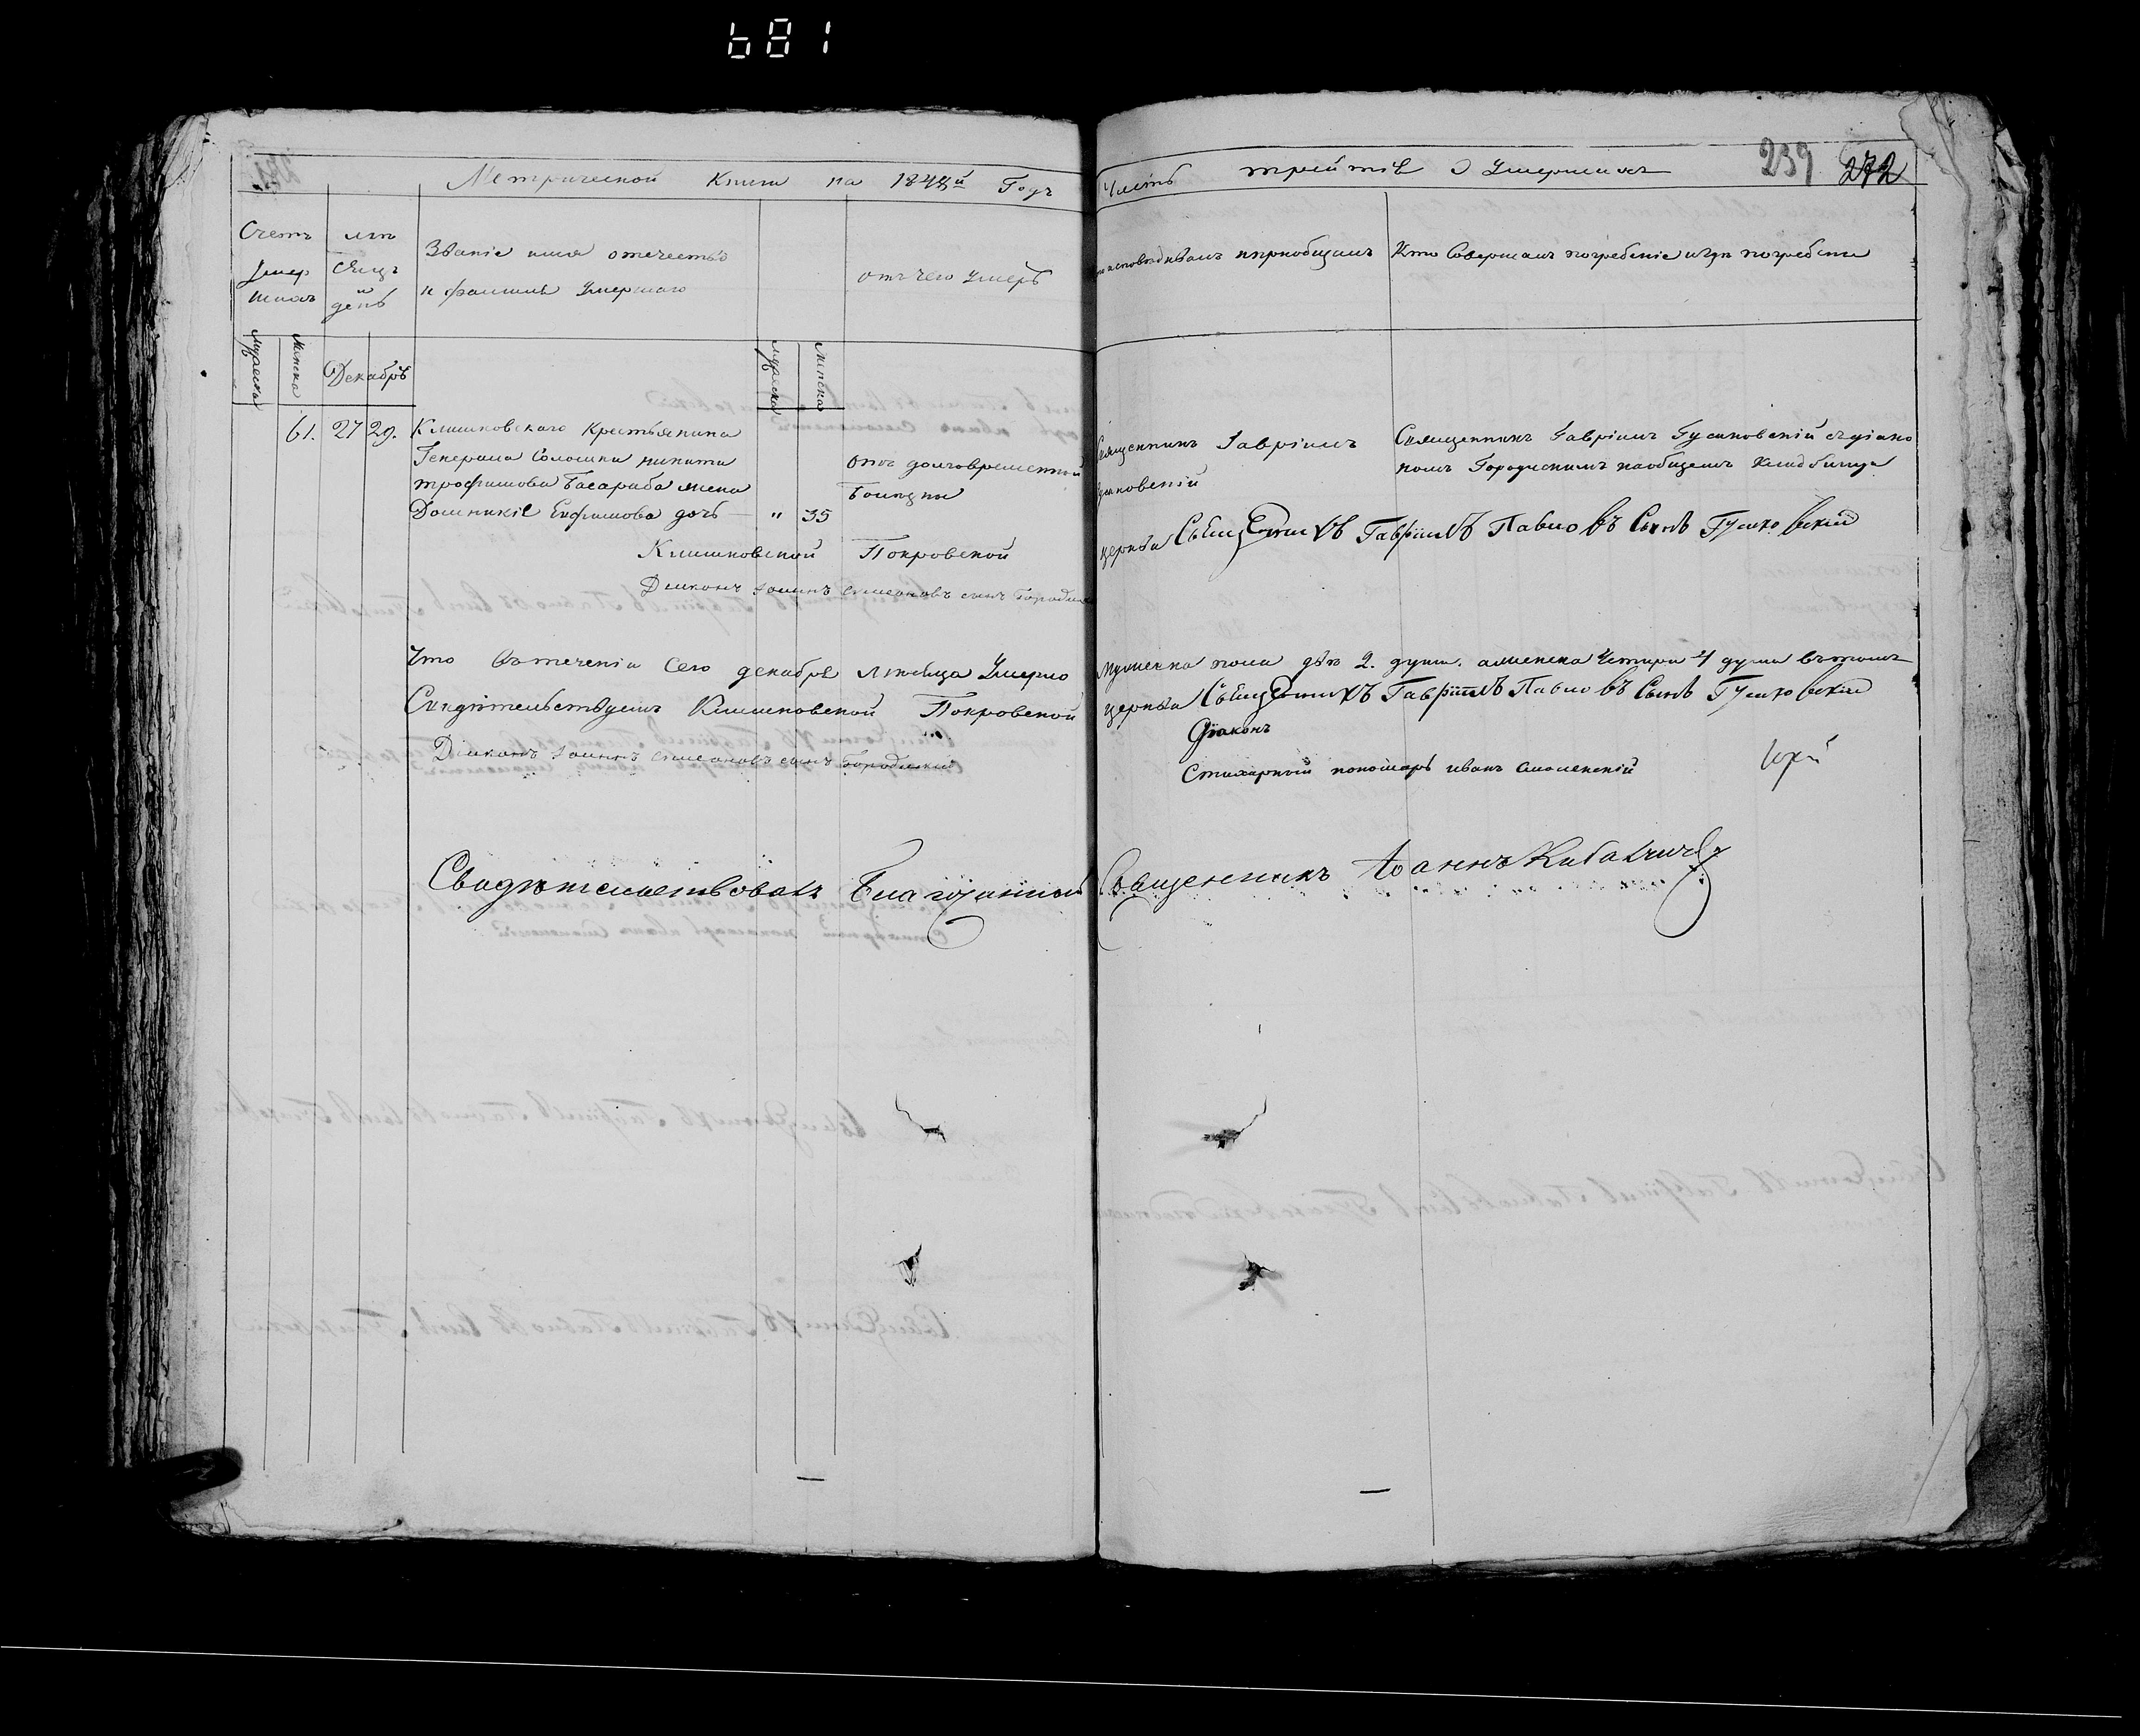 681
Метрической Книги на 1848й Годъ
Часть третія О Умершихъ
239 272
Счетъ
умер
шихъ
мѣ
сяцъ
и
день
Званіе имя отечество
и фамилія Умершаго
отъ чего Умеръ
исповѣдывалъ и пріобщалъ
Кто Совершалъ погребеніе и гдѣ погребены
мужеска
женска
Декабрь
мужеска
женска
61. 27 29. Клишковскаго Крестьянина
Генерала Солошки никиты
трофимова Басараба жена
Домникіѧ Ефимова дочь — " 35
отъ долговременной
болезни
Священникъ Гавріилъ
Гушковскій
Священникъ Гавріилъ Гушковскій съ діако
номъ Городискимъ на общемъ кладбищѣ
Клишковской Покровской
церкви Священникъ Гавріилъ Павловъ Сынъ Гушковскій
Діаконъ Іоаннъ симеоновъ сынъ Городиск
Что въ теченіи Сего декабря мѣсяца Умерло
мужеска пола двѣ 2. души. а женска Четыри 4 души въ томъ
Свидѣтельствуемъ Клишковской Покровской
церкви Священникъ Гавріилъ Павловъ Сынъ Гушковскій
Діаконъ
Діаконъ Іоаннъ симеоновъ сынъ Городискій
Стихарный пономарь иванъ Смоленскій
Свидѣтельствовалъ Благочинный
Священникъ Іоаннъ